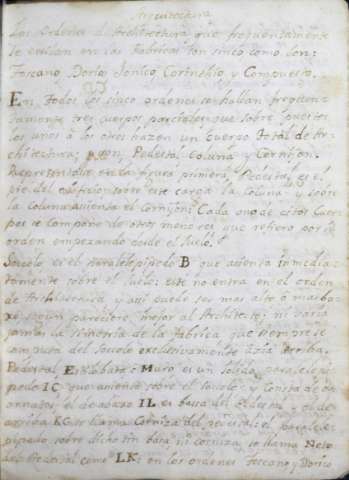 Arquitectura
Los Ordenes d Architectura que frequentemente
se en las fabricas son sinco como son:
Toscano, Dorico, Ionico, Corinthio, y Compuesto.
En todos los sinco ordenes se hallan frequen-
tamente tres cuerpos parciales, que sobre puestos
los unos à los otros hazen un cuerpo total de Ar-
chitectura; y son; Pedestal, Coluna, y Cornijon.
Representalo en la figura primera; Pedestal es el
pie del edificio: sobre este carga la Coluna: y sobre
la coluna asienta el Cornijon: Cada uno de estos Cuer-
pos se compone de otros menores que refiero por el
orden empezando desde el suelo.
Socolo es el paralelepipedo B que asienta inmedia-
tamente sobre el suelo: este no entra en el orden
de Architectura, y assi puede ser mas alto ò mas ba-
xo segun pareciere mejor al Architecto; ni varia
jamas la simetria de la fabrica, que siempre se
computa del socolo exclusivamente azia arriba.
Pedestal es un solido paralelepi-
pedo IC que asienta sobre el socolo: y consta de
ornatos; el de abaxo IL es basa del pedestal: el de
arriba KC se llama Corniza del pedestal: el paralele-
pipedo sobre dicho sin basa ni corniza se llama Neto
del Pedestal como LK: en los ordenes toscano y Dorico